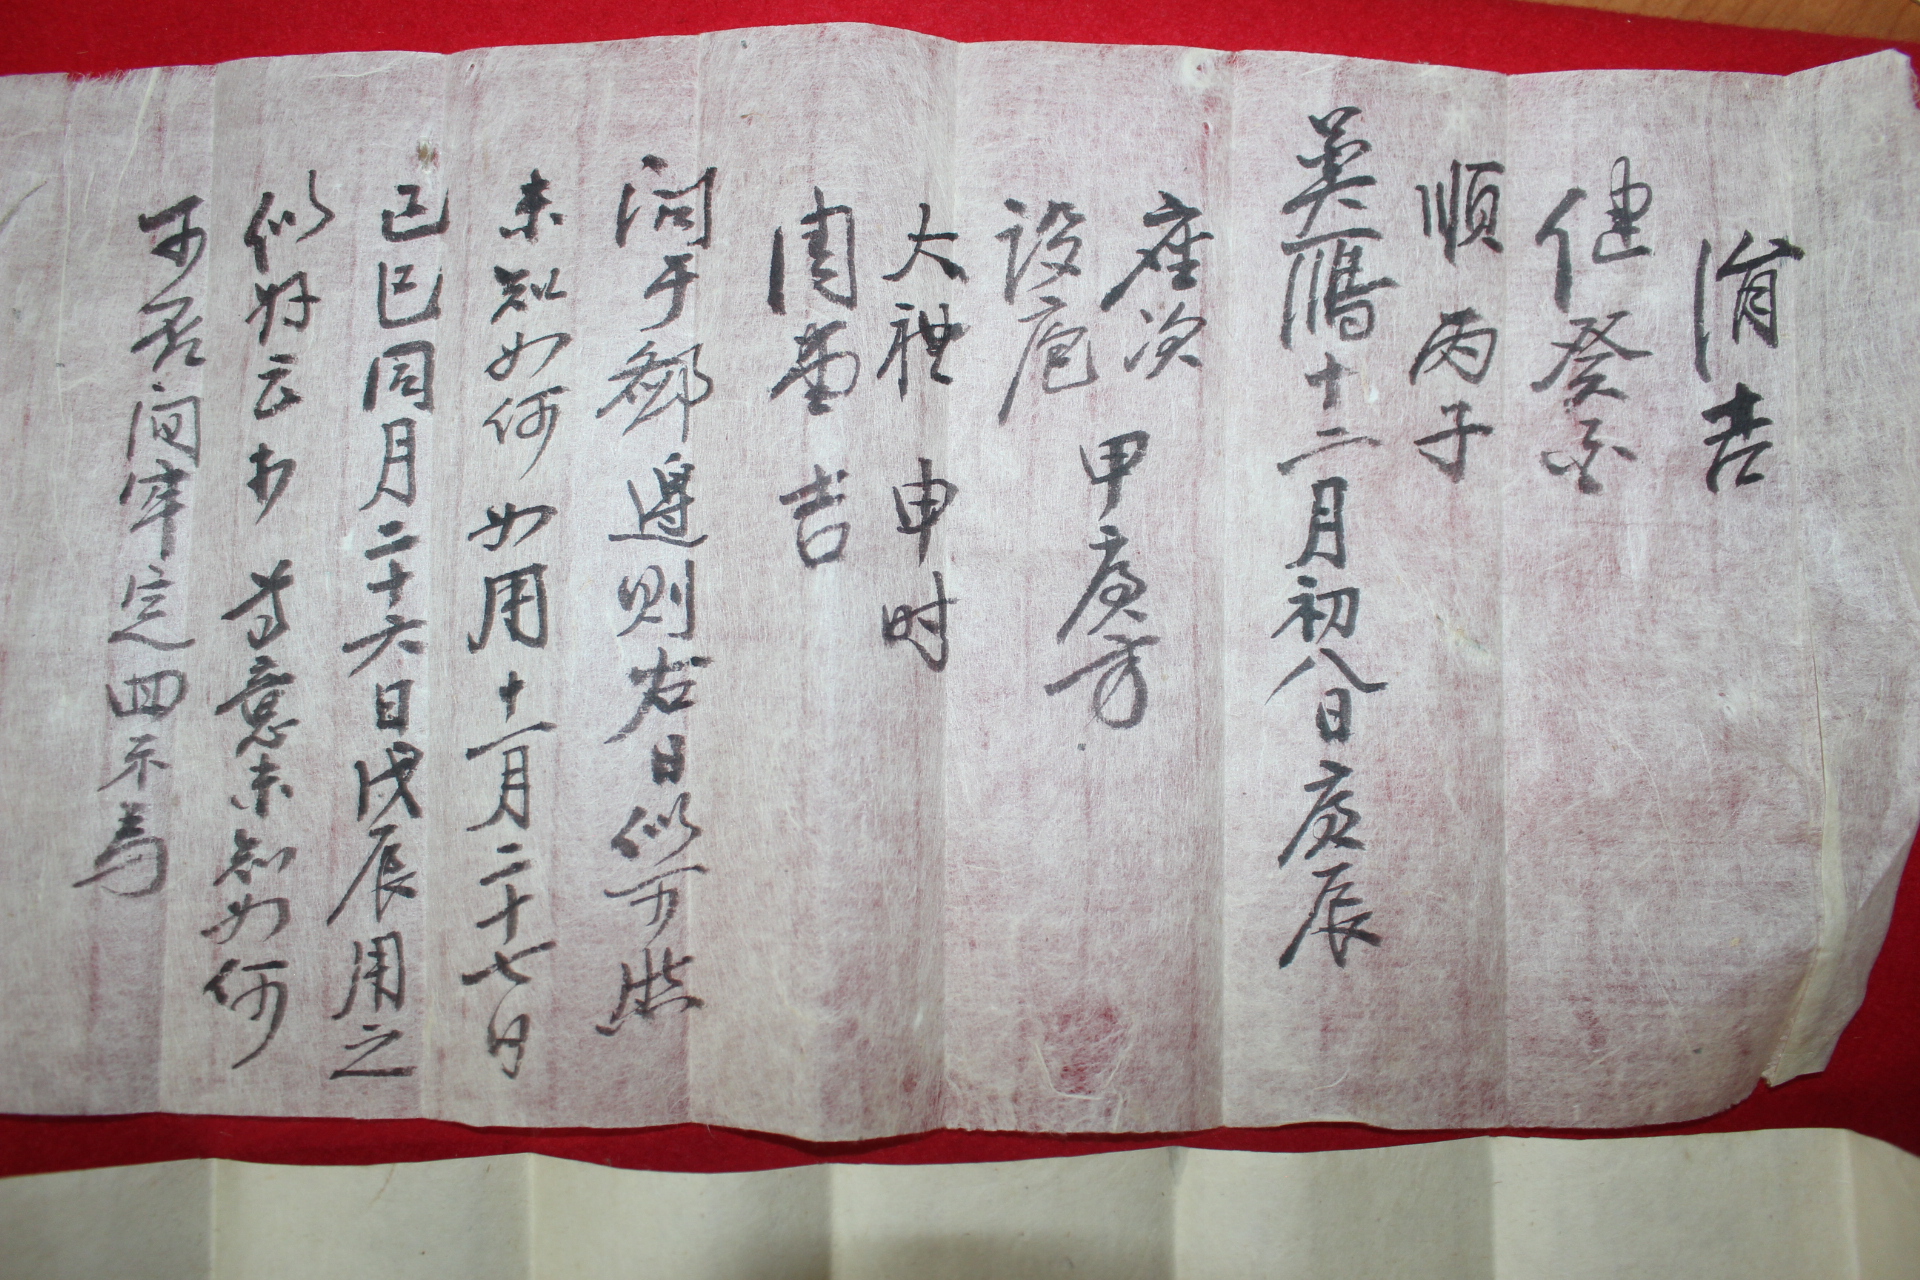 涓吉
健 癸
順 丙子
奠鴈十二月初八日庚辰
座次
設庖 甲庚方
大禮 申時
周堂 吉
問于鄉邊則右日似可然
未知如何 如用十一月二十七日
己巳同月二十六日戊辰用之
似好云 尊意未知如何
可否间牢定回示焉